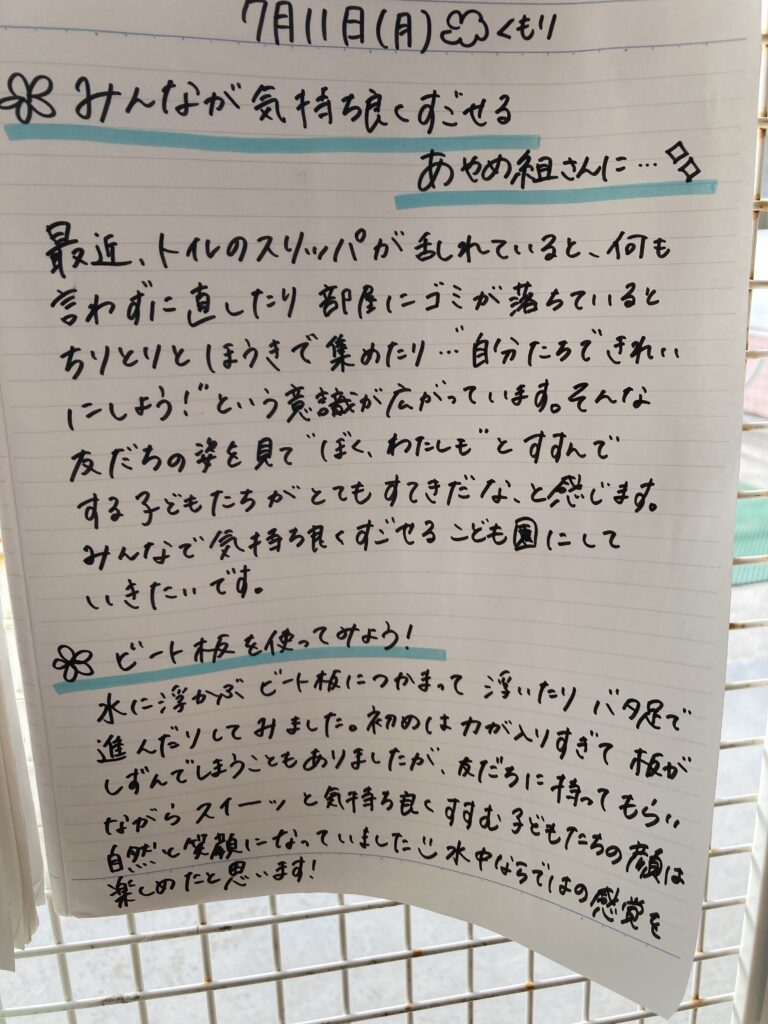 7月11日(月) くもり
みんなが気持ち良くすごせる
あやめ組さんに…
最近、トイレのスリッパが乱れていると、何も
言わずに直したり 部屋にゴミが落ちていると
ちりとりとほうきで集めたり…"自分たちできれい
にしよう!"という意識が広がっています。そんな
友だちの姿を見て"ぼく、わたしも"とすすんで
する子どもたちがとてもすてきだな、と感じます。
みんなで気持ち良くすごせるこども園にして
いきたいです。
ビート板を使ってみよう!
水に浮かぶビート板につかまって 浮いたり バタ足で
進んだりしてみました。初めは力が入りすぎて 板が
しずんでしまうこともありましたが、友だちに持ってもらい
ながらスイーッと気持ち良くすすむ子どもたちの顔は
自然と笑顔になっていました 水中ならではの感覚を
楽しめたと思います!